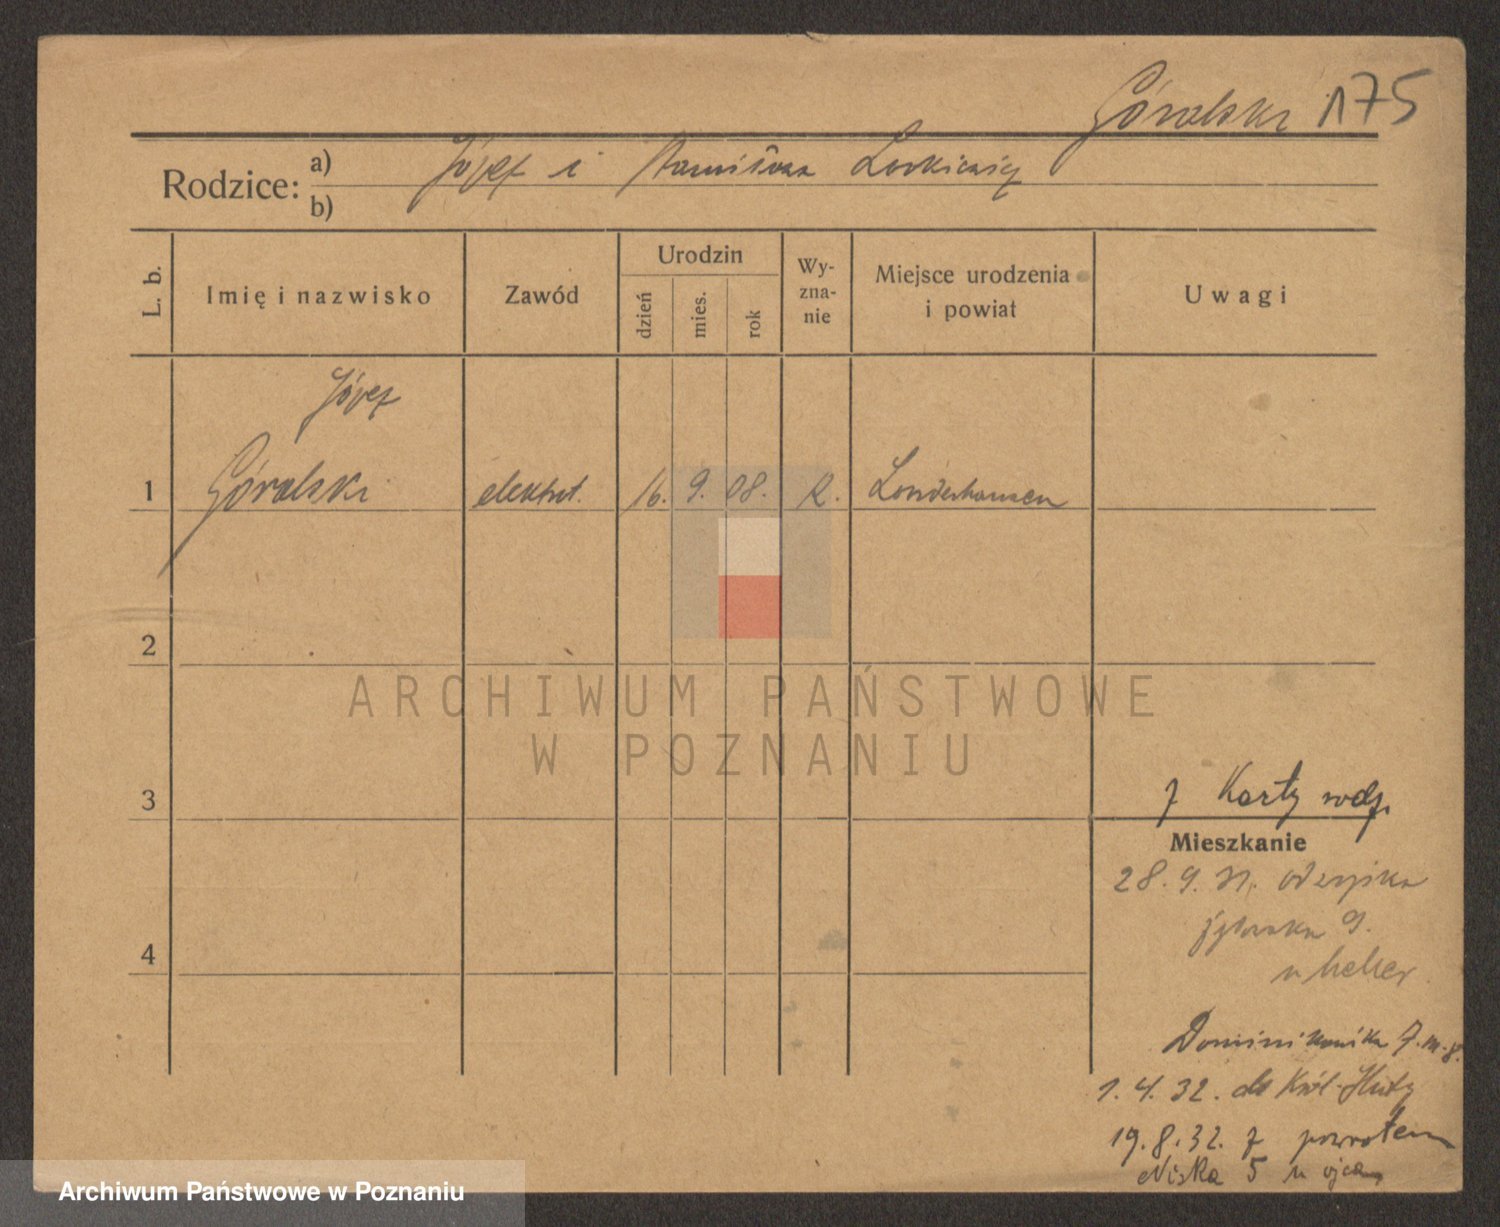 Góralski 175
Rodzice: a) Józef i Stanisława
b)
L. b.
Imię i nazwisko
Zawód
Urodzin
dzień
mies.
rok
Wy-
zna-
nie
Miejsce urodzenia
i powiat
Uwagi
Józef
1 Góralski elektrot. 16. 9. 08. R.
2
3
4
z Karty rodz.
Mieszkanie
28. 9. 31.
9.
u
Dominikańska 7. m. 8.
1. 4. 32. do Król. Huty
19. 8. 32. z powrotem
Niska 5 u ojca
ARCHIWUM PAŃSTWOWE
W POZNANIU
Archiwum Państwowe w Poznaniu